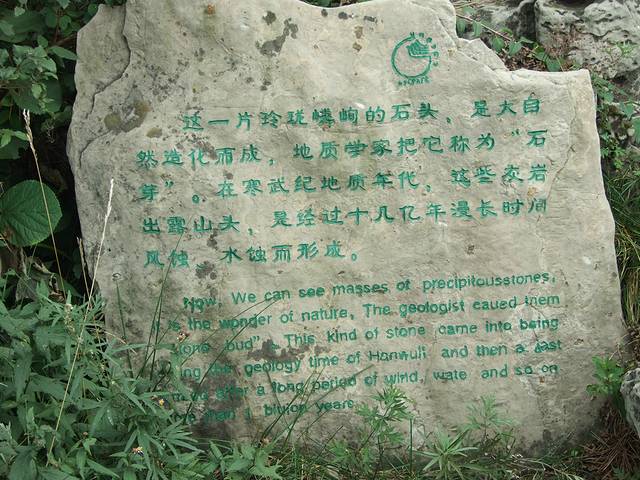 这一片玲珑嶙峋的石头，是大自
然造化而成，地质学家把它称为“石
芽”。在寒武纪地质年代，这些灰岩
出露山头，是经过十几亿年漫长时间
风蚀 水蚀而形成。
Now, We can see masses of precipitousstones,
is the wonder of nature, The geologist caued them
bud". This kind of stone came into being
the geology time of Hanwuli and then a
after a long period of wind, wate and so on
than 1 billion years